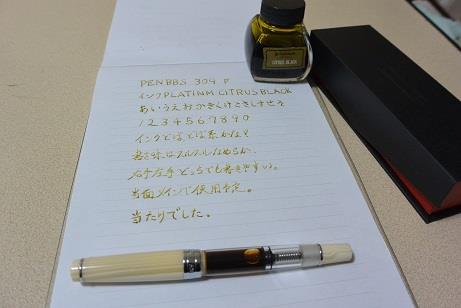 PENBBS 309 F
インクPLATINM CITRUS BLACK
あいうえおかきくけこさしすせそ
1234567890
インクどばどば系かな?
書き味はスルスルしなめらか、
右手左手どっちでも書きやすい。
当面メインで使用予定。
当たりでした。
CITRUS BLACK